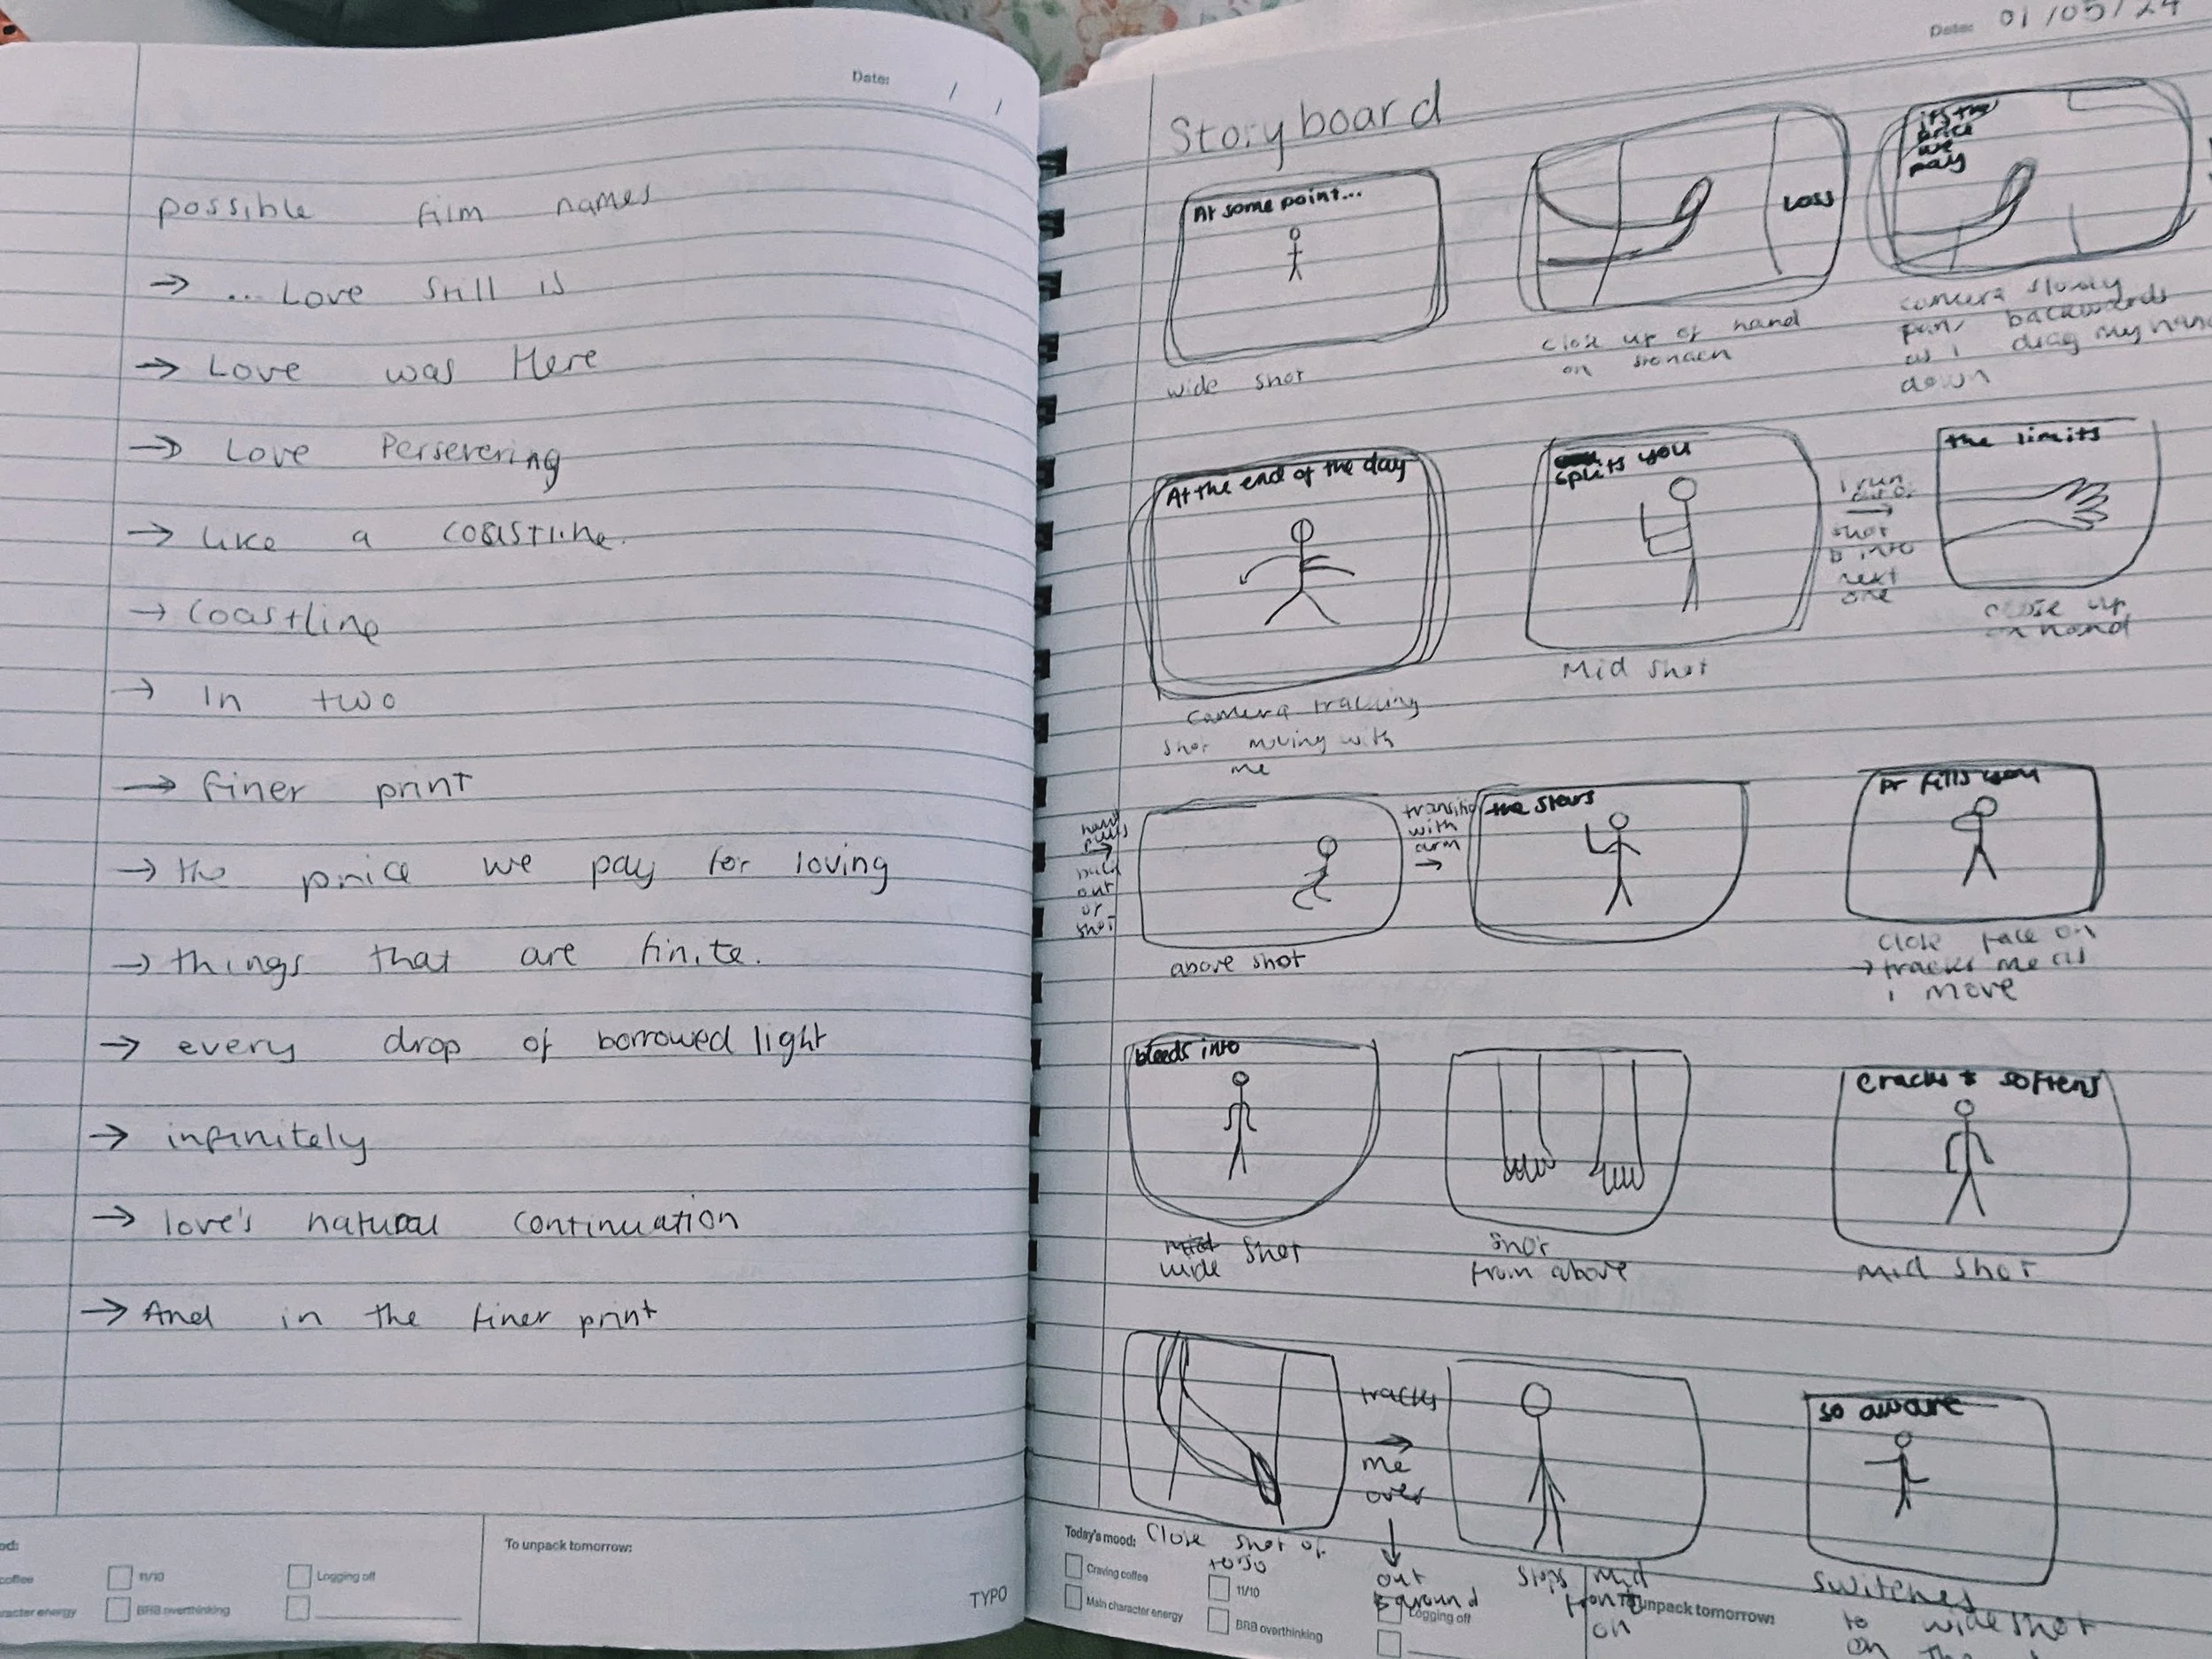 Date: / /
possible film names
→ ... Love Still is
→ Love was Here
→ Love Persevering
→ Like a coastline.
→ Coastline
→ In two
→ finer print
→ the price we pay for loving
→ things that are finite.
→ every drop of borrowed light
→ infinitely
→ love's natural continuation
→ And in the finer print
od:
coffee
11/10
Logging off
racter energy
BRB overthinking
To unpack tomorrow:
TYPO
Date: 01/05/24
Storyboard
At some point...
wide shot
Loss
close up of hand
on stomach
its the
price
we
pay
camera slowly
pans backwards
as i drag my hand
down
At the end of the day
camera tracking
shot moving with
me
splits you
Mid shot
I run
out of
→
shot
& into
next
one
the limits
close up
on hand
hand
pulls
→
back
out
of
shot
above shot
transition
with
arm
→
the stars
or fills you
close face on
→ tracks me as
i move
bleeds into
wide shot
shot
from above
cracks & softens
Mid shot
Close shot of
torso
tracks
→
me
over
↓
out
&ground
stops mid
front
on
so aware
switches
to wide shot
on the
Today's mood:
Craving coffee
11/10
Logging off
Main character energy
BRB overthinking
unpack tomorrow: